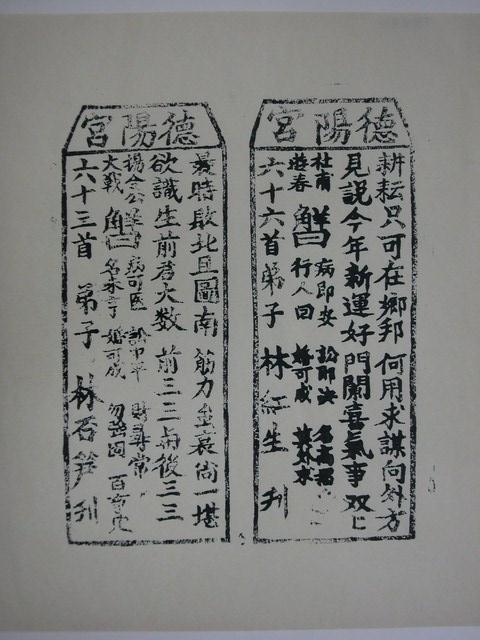 德陽宮
耕耘只可在鄉邦 何用求謀向外方
見說今年新運好 門闌喜氣事双〻
杜甫 遊春 解曰 病即安 訟即決 名高
行人回 婚可成 莫外求
六十六首 弟子 林紅生 刋
德陽宮
曩時敗北且圖南 筋力虽衰尚一堪
欲識生前君大数 前三二與後三三
楊令公 大戰 解曰 病可医 訟和平 財尋常
名未亨 婚可成 勿強圖 百事
六十三首 弟子 林 笋 刋